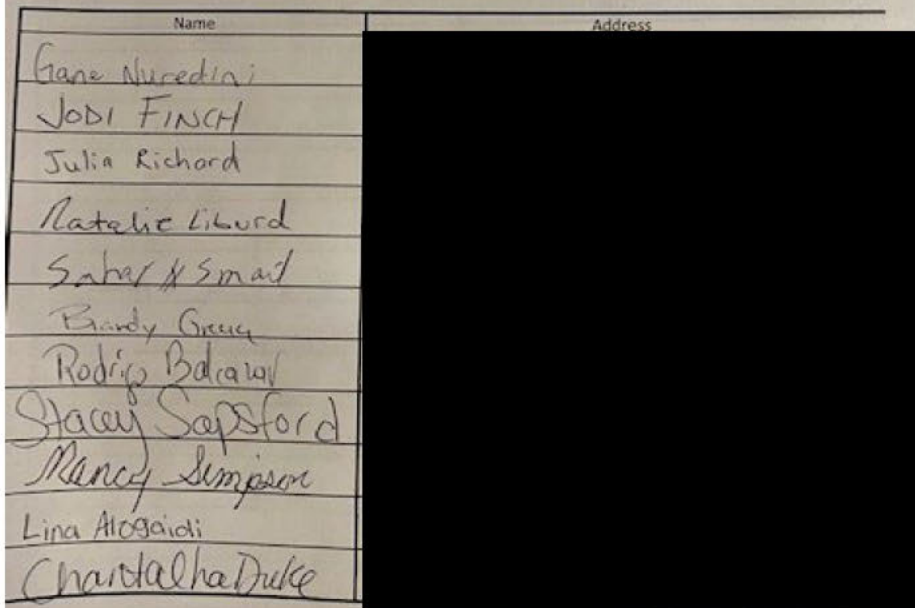 Name Address
Gane Nuredini
JODI FINCH
Julia Richard
Natalie Liburd
Sahar Ismail
Brandy
Rodrigo Balcazar
Stacey Sapsford
Nancy Simpson
Lina Alogaidi
Duke